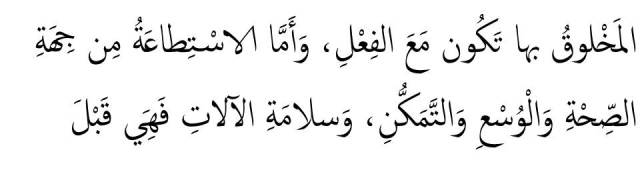 المَخْلوقُ بها تَكُون مَعَ الفِعْلِ، وَأَمَّا الاسْتِطاعَةُ مِن جِهَةِ
الصِّحْةِ وَالْوُسْعِ وَالتَّمَكُّنِ، وَسلامَةِ الآلاتِ فَهِيَ قَبْلَ